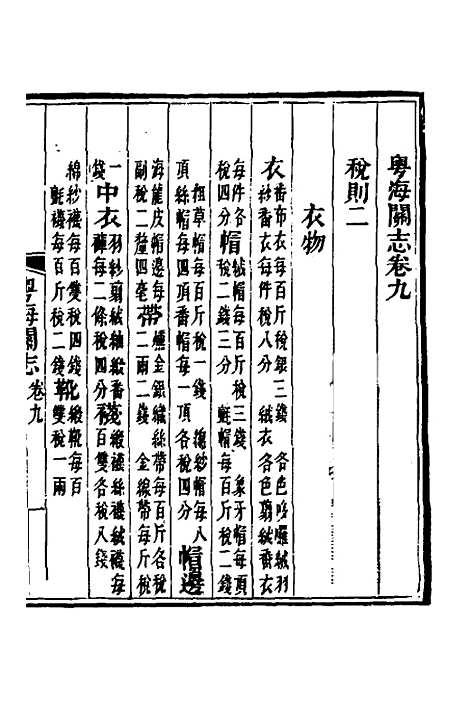 粵海關志卷九
稅則二
衣物
衣番布衣每百斤稅銀三錢 各色嗶囉絨羽
紗番衣每件稅八分 絨衣各色剪絨番衣
每件各帽絨帽每百斤稅三錢 象牙帽每頂
稅四分帽稅二錢三分 氈帽每百斤稅二錢
粗草帽每百斤稅一錢 摠紗帽每八
頂絲帽每四頂番帽每一頂各稅四分帽邊
海龍皮帽邊每帶纏金銀絨絲帶每百斤各稅
副稅二釐四毫帶二兩二錢 金線帶每斤稅
一中衣羽紗剪絨紬緞番襪緞襪絲襪絨襪每
錢中衣褲每二條稅四分襪百雙各稅八錢
綿紗襪每百雙稅四錢靴緞靴每百
氈襪每百斤稅二錢靴雙稅一兩
粵海關志 卷九